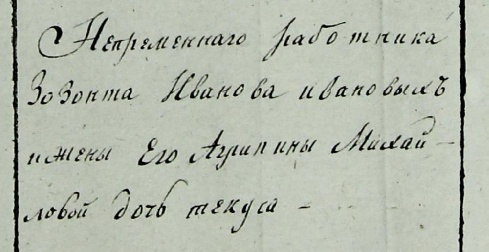 Непременнаго работника
Зозонта Иванова ивановыхъ
и жены Его Агрипины Михай-
ловой дочь текуса -